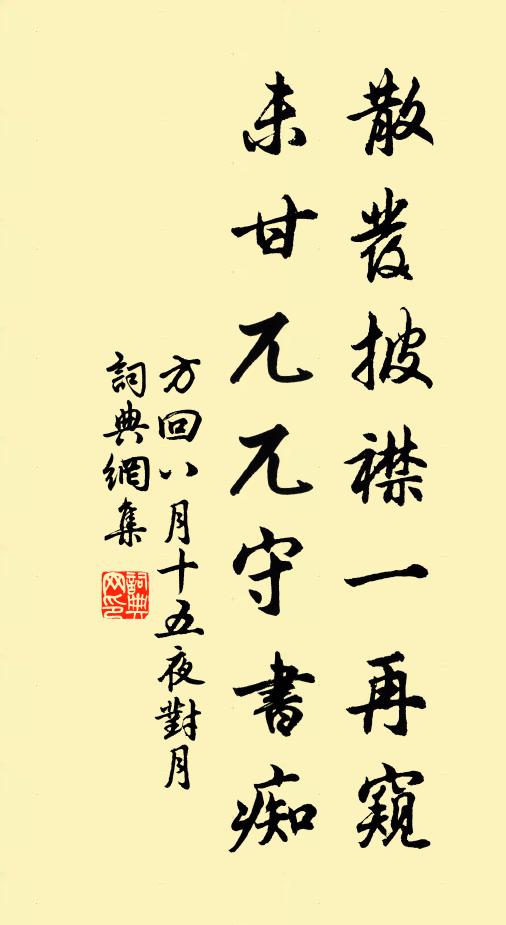 散發披襟一再窺
未甘兀兀守書痴
方回八月十五夜對月
詞典網集
詞典网印